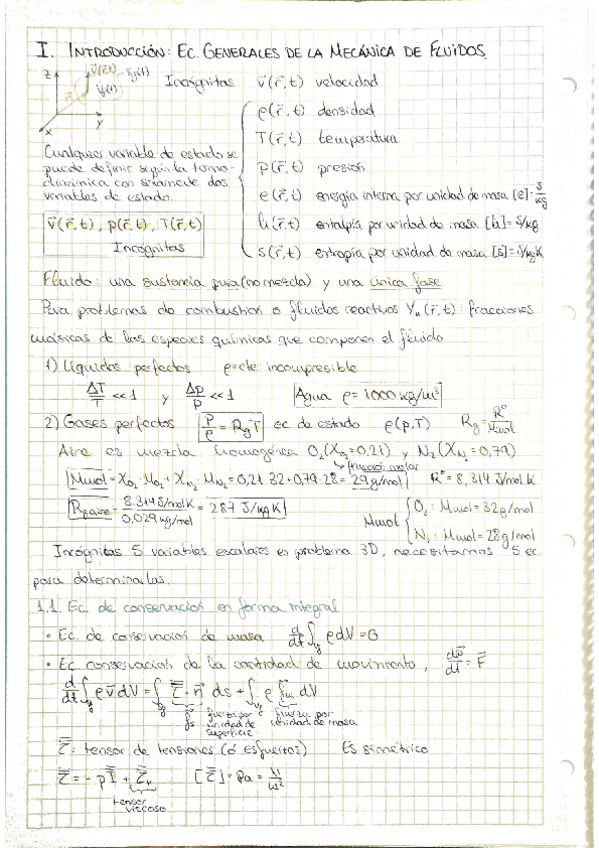 I. INTRODUCCIÓN: EC. GENERALES DE LA MECÁNICA DE FLUIDOS
z
x
y
Incógnitas
v⃗(r⃗,t) velocidad
ρ(r⃗,t) densidad
T(r⃗,t) temperatura
p(r⃗,t) presión
e(r⃗,t) energía interna por unidad de masa [e]=J/kg
h(r⃗,t) entalpía por unidad de masa [h]=J/kg
s(r⃗,t) entropía por unidad de masa [s]=J/kgK
Cualquier variable de estado se
puede definir según la termo-
dinámica con solamente dos
variables de estado.
v⃗(r⃗,t), p(r⃗,t), T(r⃗,t)
Incógnitas
Fluido: una sustancia pura (no mezcla) y una única fase
Para problemas de combustión o fluidos reactivos Yn(r⃗,t): fracciones
másicas de las especies químicas que componen el fluido
1) Líquidos perfectos ρ=cte incompresible
ΔT/T <<1 y Δρ/ρ <<1 Agua ρ=1000 kg/m³
2) Gases perfectos p/ρ = RgT ec de estado ρ(p,T) Rg = R°/Mmol
Aire es mezcla homogénea O₂(X_O₂=0,21) y N₂(X_N₂=0,79)
fracción molar
Mmol = X_O₂·M_O₂ + X_N₂·M_N₂ = 0,21·32+0,79·28 = 29g/mol R°=8,314 J/molK
Rg aire = 8.314 J/molK / 0,029 kg/mol = 287 J/kgK
Mmol { O₂: Mmol=32g/mol
N₂: Mmol=28g/mol
Incógnitas 5 variables escalares en problema 3D, necesitamos 5 ec.
para determinarlas.
1.1. Ec. de conservación en forma integral
• Ec. de conservación de masa d/dt ∫ ρdV=0
• Ec conservación de la cantidad de movimiento, dp⃗/dt = F⃗
d/dt ∫ ρv⃗dV = ∫ τ·n⃗ ds + ∫ ρ f⃗m dV
fuerza por unidad de superficie
fuerza por unidad de masa
τ: tensor de tensiones (ó esfuerzos) Es simétrico
τ = -pI + τv [τ]=Pa = N/m²
tensor
viscoso